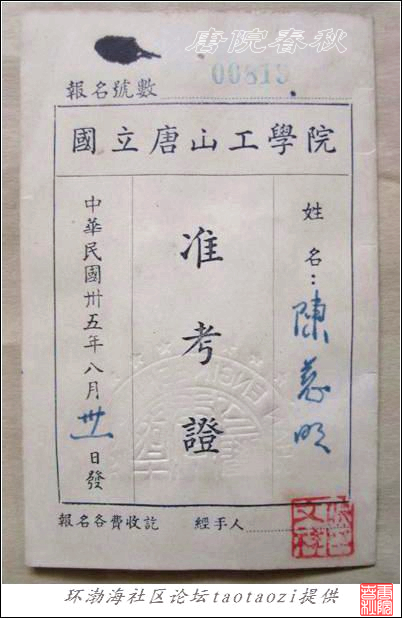 唐院春秋
報名號數
國立唐山工學院
姓名：陳
准考證
中華民國卅五年八月卅一日發
報名各費收訖 經手人
环渤海社区论坛taotaozi提供
唐院春秋